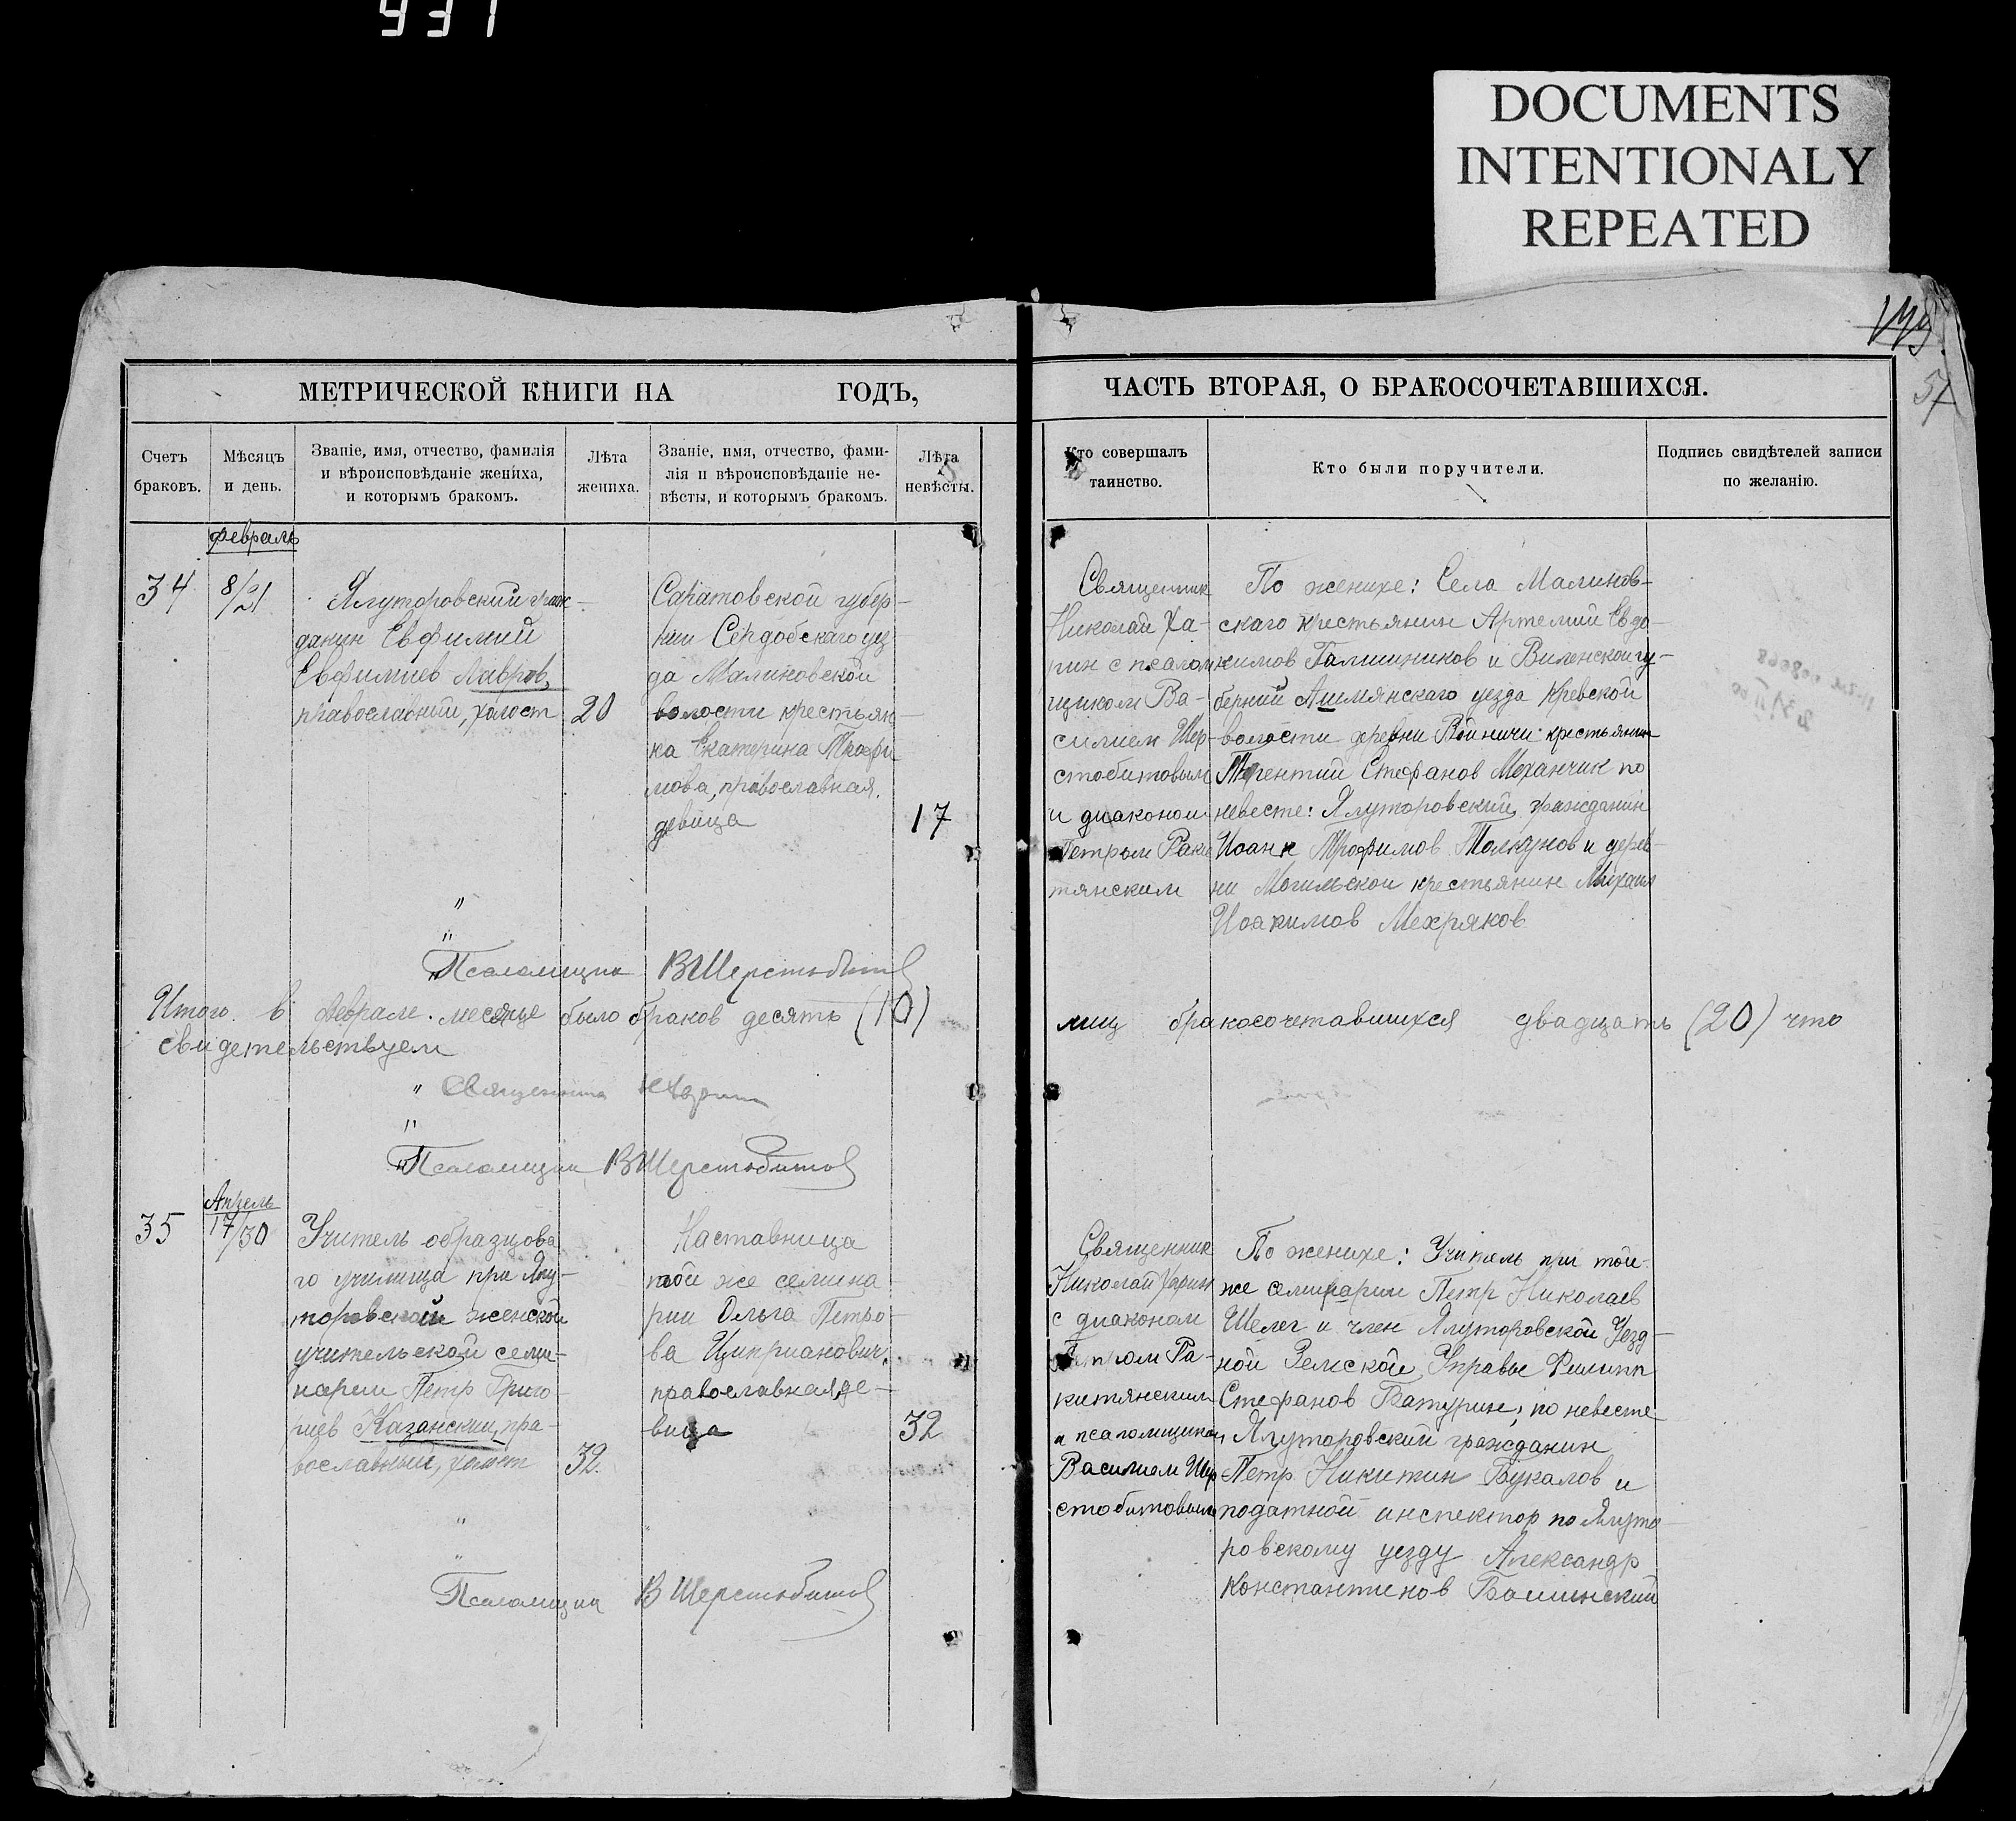 931
DOCUMENTS
INTENTIONALY
REPEATED
57
МЕТРИЧЕСКОЙ КНИГИ НА ГОДЪ,
ЧАСТЬ ВТОРАЯ, О БРАКОСОЧЕТАВШИХСЯ.
Счетъ
браковъ.
Мѣсяцъ
и день.
Званіе, имя, отчество, фамилія
и вѣроисповѣданіе жениха,
и которымъ бракомъ.
Лѣта
жениха.
Званіе, имя, отчество, фами-
лія и вѣроисповѣданіе не-
вѣсты, и которымъ бракомъ.
Лѣта
невѣсты.
Кто совершалъ
таинство.
Кто были поручители.
Подпись свидѣтелей записи
по желанію.
Февраль
34
8/21
Ялуторовский граж-
данин Евфимий
Евфимиев Лавров,
православный, холост
20
Саратовской губер-
нии Сердобскаго уез
да Малиновской
волости крестьян-
ка Екатерина Трофи
мова, православная.
девица
17
Священник
Николай Ха-
рин с псалом
щиком Ва-
силием Шер-
стобитовым
и диаконом
Петром Раки
тянским
По женихе: Села Малинов-
скаго крестьянин Артемий Евдо-
кимов Галишников и Виленской гу-
бернии Ашмянскаго уезда Кревской
волости деревни Войничи крестьянин
Терентий Стефанов Моханчик по
невесте: Ялуторовский гражданин
Иоанн Трофимов Толкунов и дерев-
ни Могильской крестьянин Михаил
Иоакимов Мехряков
Псаломщик ВШерстобитов
Итого в феврале месяце было браков десять (10)
лиц бракосочетавшихся двадцать (20) что
свидетельствуем
Священник НХарин
Псаломщик ВШерстобитов
Апрель
35
17/30
Учитель образцова
го училища при Ялу-
торовской женской
учительской семи-
нарии Петр Григо-
риев Казанский, пра-
вославный, холост
32.
Наставница
той же семина
рии Ольга Петро-
ва Циприанович,
православная де-
вица
32
Священник
Николай Харин
с диаконом
Петром Ра-
китянским
и псаломщиком
Василием Шер
стобитовым
По женихе: Учитель при той-
же семинарии Петр Николаев
Шелег и член Ялуторовской Уезд-
ной Земской Управы Филипп
Стефанов Батурин; по невесте
Ялуторовский гражданин
Петр Никитин Букалов и
податной инспектор по Ялуто-
ровскому уезду Александр
Константинов
Псаломщик В Шерстобитов